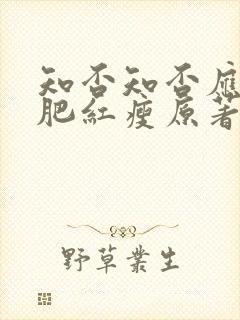 知否知否應
肥紅瘦原著
野草叢生